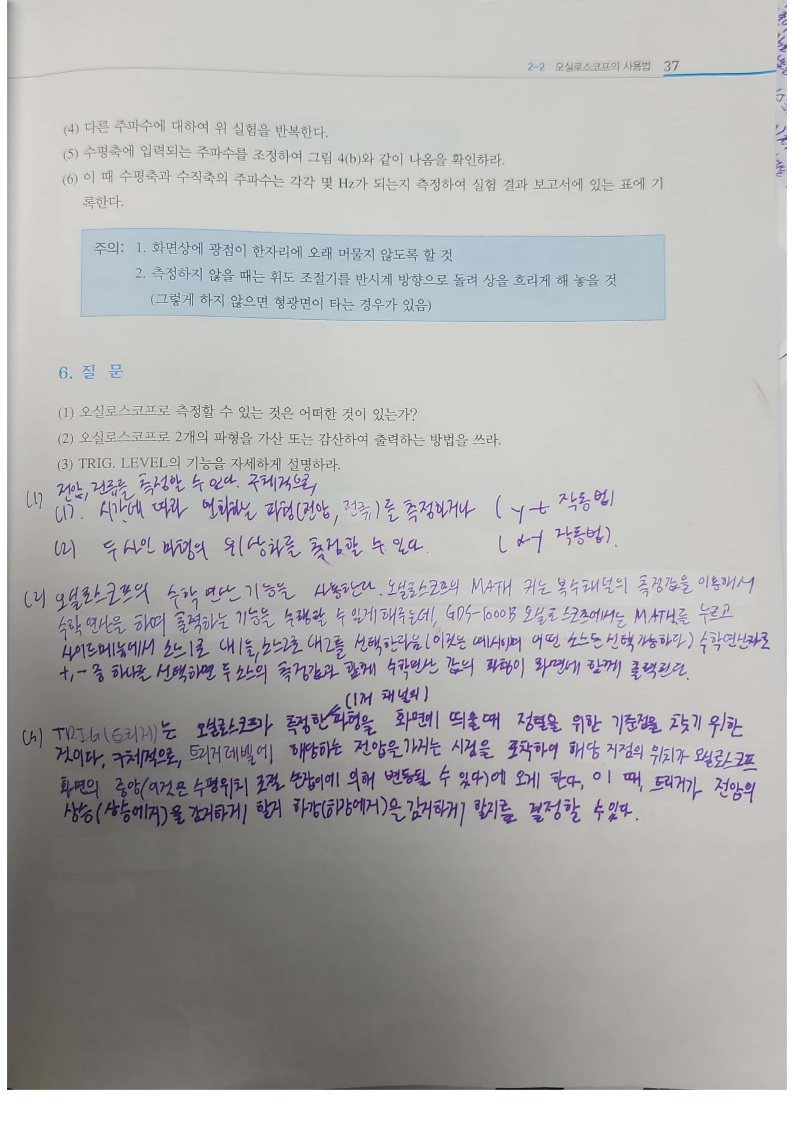 2-2 오실로스코프의 사용법 37
(4) 다른 주파수에 대하여 위 실험을 반복한다.
(5) 수평축에 입력되는 주파수를 조정하여 그림 4(b)와 같이 나옴을 확인하라.
(6) 이 때 수평축과 수직축의 주파수는 각각 몇 Hz가 되는지 측정하여 실험 결과 보고서에 있는 표에 기
록한다.
주의: 1. 화면상에 광점이 한자리에 오래 머물지 않도록 할 것
2. 측정하지 않을 때는 휘도 조절기를 반시계 방향으로 돌려 상을 흐리게 해 놓을 것
(그렇게 하지 않으면 형광면이 타는 경우가 있음)
6. 질 문
(1) 오실로스코프로 측정할 수 있는 것은 어떠한 것이 있는가?
(2) 오실로스코프로 2개의 파형을 가산 또는 감산하여 출력하는 방법을 쓰라.
(3) TRIG. LEVEL의 기능을 자세하게 설명하라.
(1) 전압, 전류를 측정할 수 있다. 구체적으로,
(1). 시간에 따라 변화하는 파형(전압, 전류)를 측정하거나 (y-t 작동법)
(2) 두 사인 파형의 위상차를 측정할 수 있다. (x-y 작동법).
(2) 오실로스코프의 수학 연산 기능을 사용한다. 오실로스코프의 MATH 키는 복수채널의 측정값을 이용해서
수학 연산을 하여 출력하는 기능을 수행할 수 있게 해주는데, GDS-1000B 오실로스코프에서는 MATH를 누르고
사이드메뉴에서 소스1로 채1을, 소스2로 채2를 선택한다음(이것은 예시이며 어떤 소스든 선택 가능하다) 수학연산자로
+, - 중 하나를 선택하면 두 소스의 측정값과 함께 수학연산 값의 파형이 화면에 함께 출력된다.
(3) TRIG(트리거)는 오실로스코프가 측정한 (1개 채널의) 파형을 화면에 띄울 때 정렬을 위한 기준점을 찾기 위한
것이다, 구체적으로, 트리거레벨에 해당하는 전압을 가지는 시점을 포착하여 해당 지점의 위치가 오실로스코프
화면의 중앙(이것은 수평위치 조절 손잡이에 의해 변동될 수 있다)에 오게 한다, 이 때, 트리거가 전압의
상승(상승에지)을 감지하게 할지 하강(하강에지)을 감지하게 할지를 결정할 수있다.